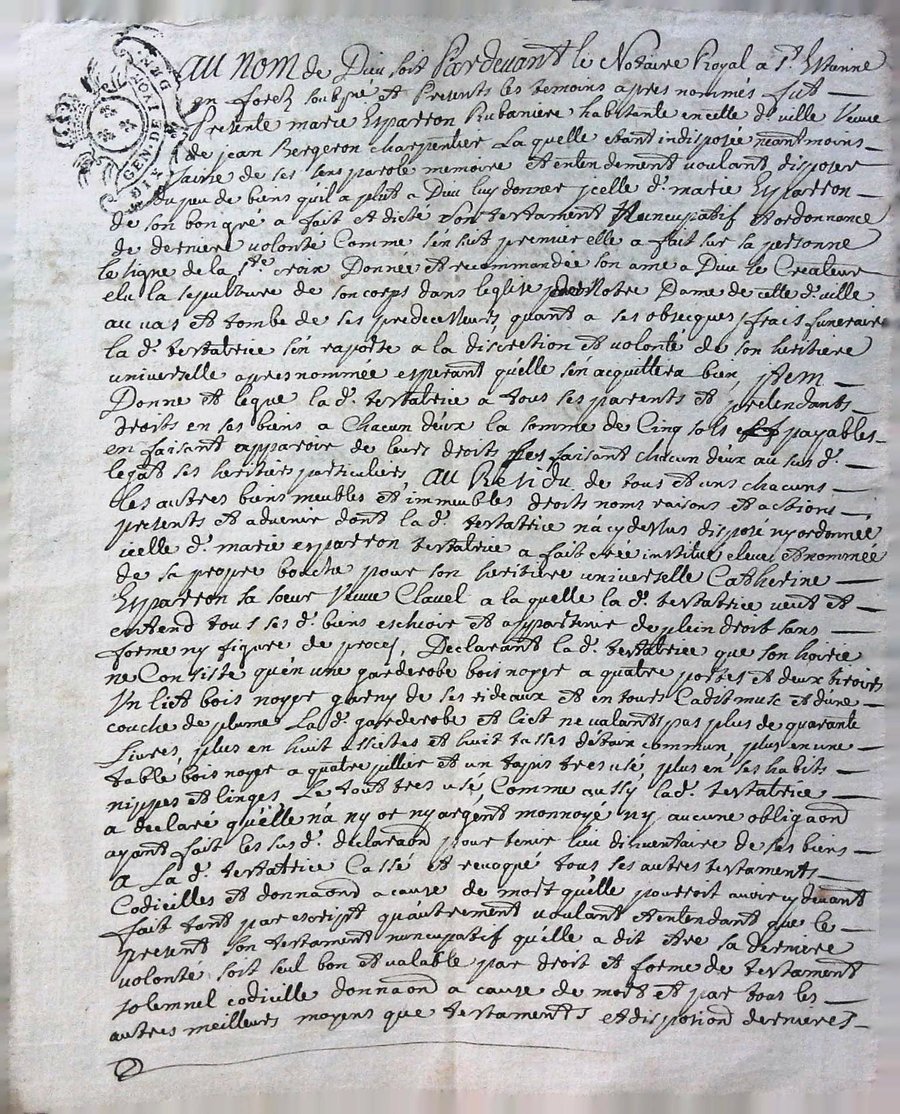 GEN. DE LYON
Au nom de Dieu soit Pardevant le Notaire Royal a St. Etienne
en forez soubsne et presents les temoins apres nommés fut
Presente marie Esparron Rubaniere habitante en celle d. ville Veuve
de jean Bergeron charpentier La quelle etant indisposée neantmoins
saine de ses sens parole memoire et entendement voulant disposer
du peu de biens qu'il a plut a Dieu luy donner jcelle d. marie Esparron
de son bon gré a fait et dicté son testament Nuncupatif et ordonnance
de derniere volonté Comme s'en suit premier elle a fait sur sa personne
le signe de la ste. croix Donnée et recommandée son ame a Dieu le Createur
elu la sepulture de son corps dans leglise Notre Dame de celle d. ville
au vas et tombe de ses predecesseurs, quant a ses obsecques frais funeraire
la d. testatrice s'en raporte a la discretion et volonté de son heritiere
universelle apres nommée esperant qu'elle s'en acquittera bien, jtem
Donne et legue la d. testatrice a tous ses parents et pretendants
droits en ses biens a chacun d'eux la somme de Cinq sols payables
en faisant apparoir de leurs droits les faisant chacun d'eux au sus d.
legat ses heritiers particuliers, au Residu de tous et uns chacuns
les autres biens meubles et immeubles droits noms raisons et actions
presents et advenir dont la d. testatrice n'a cy dessus disposé ny ordonnée
icelle d. marie esparron testatrice a fait creé institue eleue et nommée
de sa propre bouche pour son heritiere universelle Catherine
Esparron sa soeur Veuve Clavel a la quelle la d. testatrice veut et
entend tous ses d. biens eschoire et appartenir de plein droit sans
forme ny figure de proces, Declarant la d. testatrice que son hoirie
ne Consiste qu'en une garderobe bois noyer a quatre portes et deux tiroirs
Un lict bois noyer garny de ses rideaux et en tours Cadit musc et d'une
couche de plume La d. garderobe et lict ne valants pas plus de quarante
Livres, plus en huit assietes et huit tasses d'etain commun, plus en une
table bois noyer a quatre pillier et un tapis tres usé, plus en ses habits
nippes et linges, Le tout tres usé, Comme aussy la d. testatrice
a declaré qu'elle n'a ny or ny argent monnoyé ny aucune obligaond
ayant fait les sus d. declaraond pour tenir lieu d'inventaire de ses biens
a La d. testatrice Cassé et revoqué tous ses autres testaments
Codicilles et donnaond a cause de mort qu'elle pourroit avoir cy devant
fait tant par escript qu'autrement voulant et entendant que le
present son testament nuncupatif qu'elle a dit etre sa derniere
volonté soit seul bon et valable par droit et forme de testament
solemnel codicille donnaond a cause de mort et par tous les
autres meilleurs moyens que testaments et dispotiond dernieres